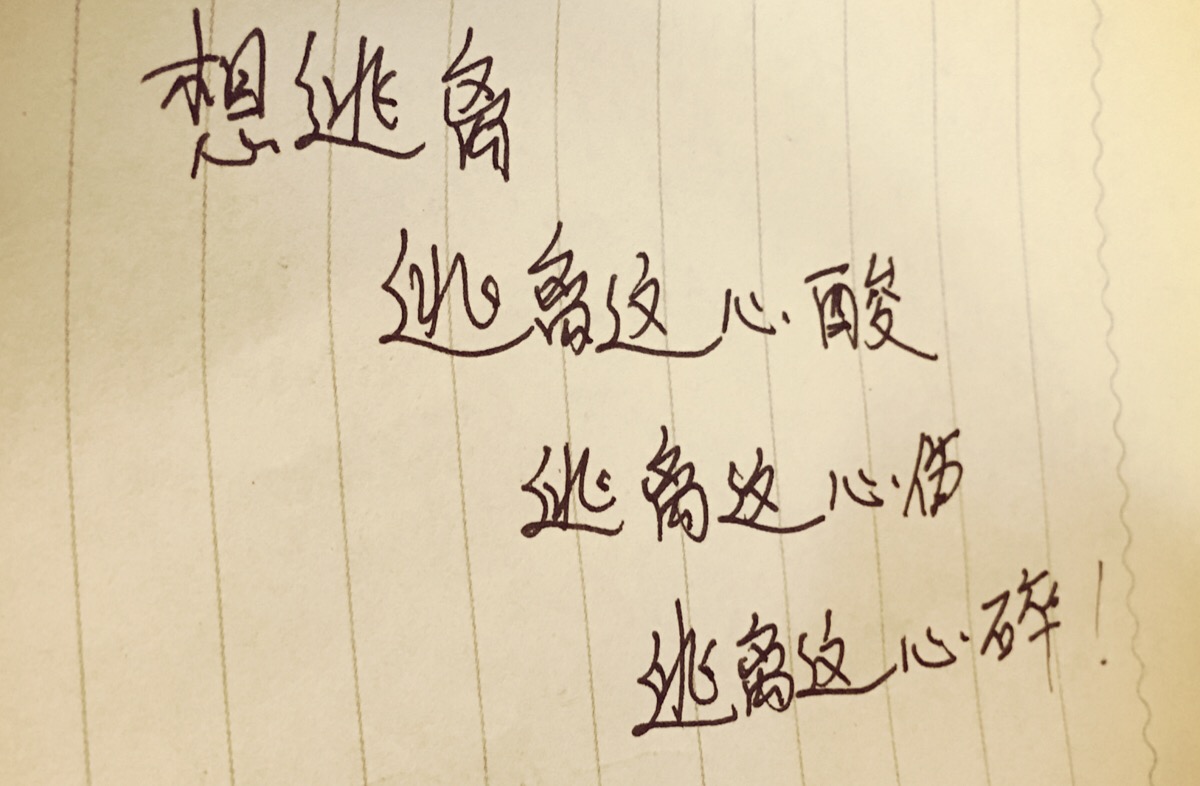 想逃离
逃离这心酸
逃离这心伤
逃离这心碎！